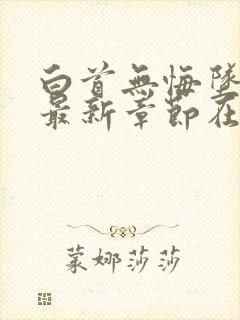 白首無悔墜
最新章節在
蒙娜莎莎